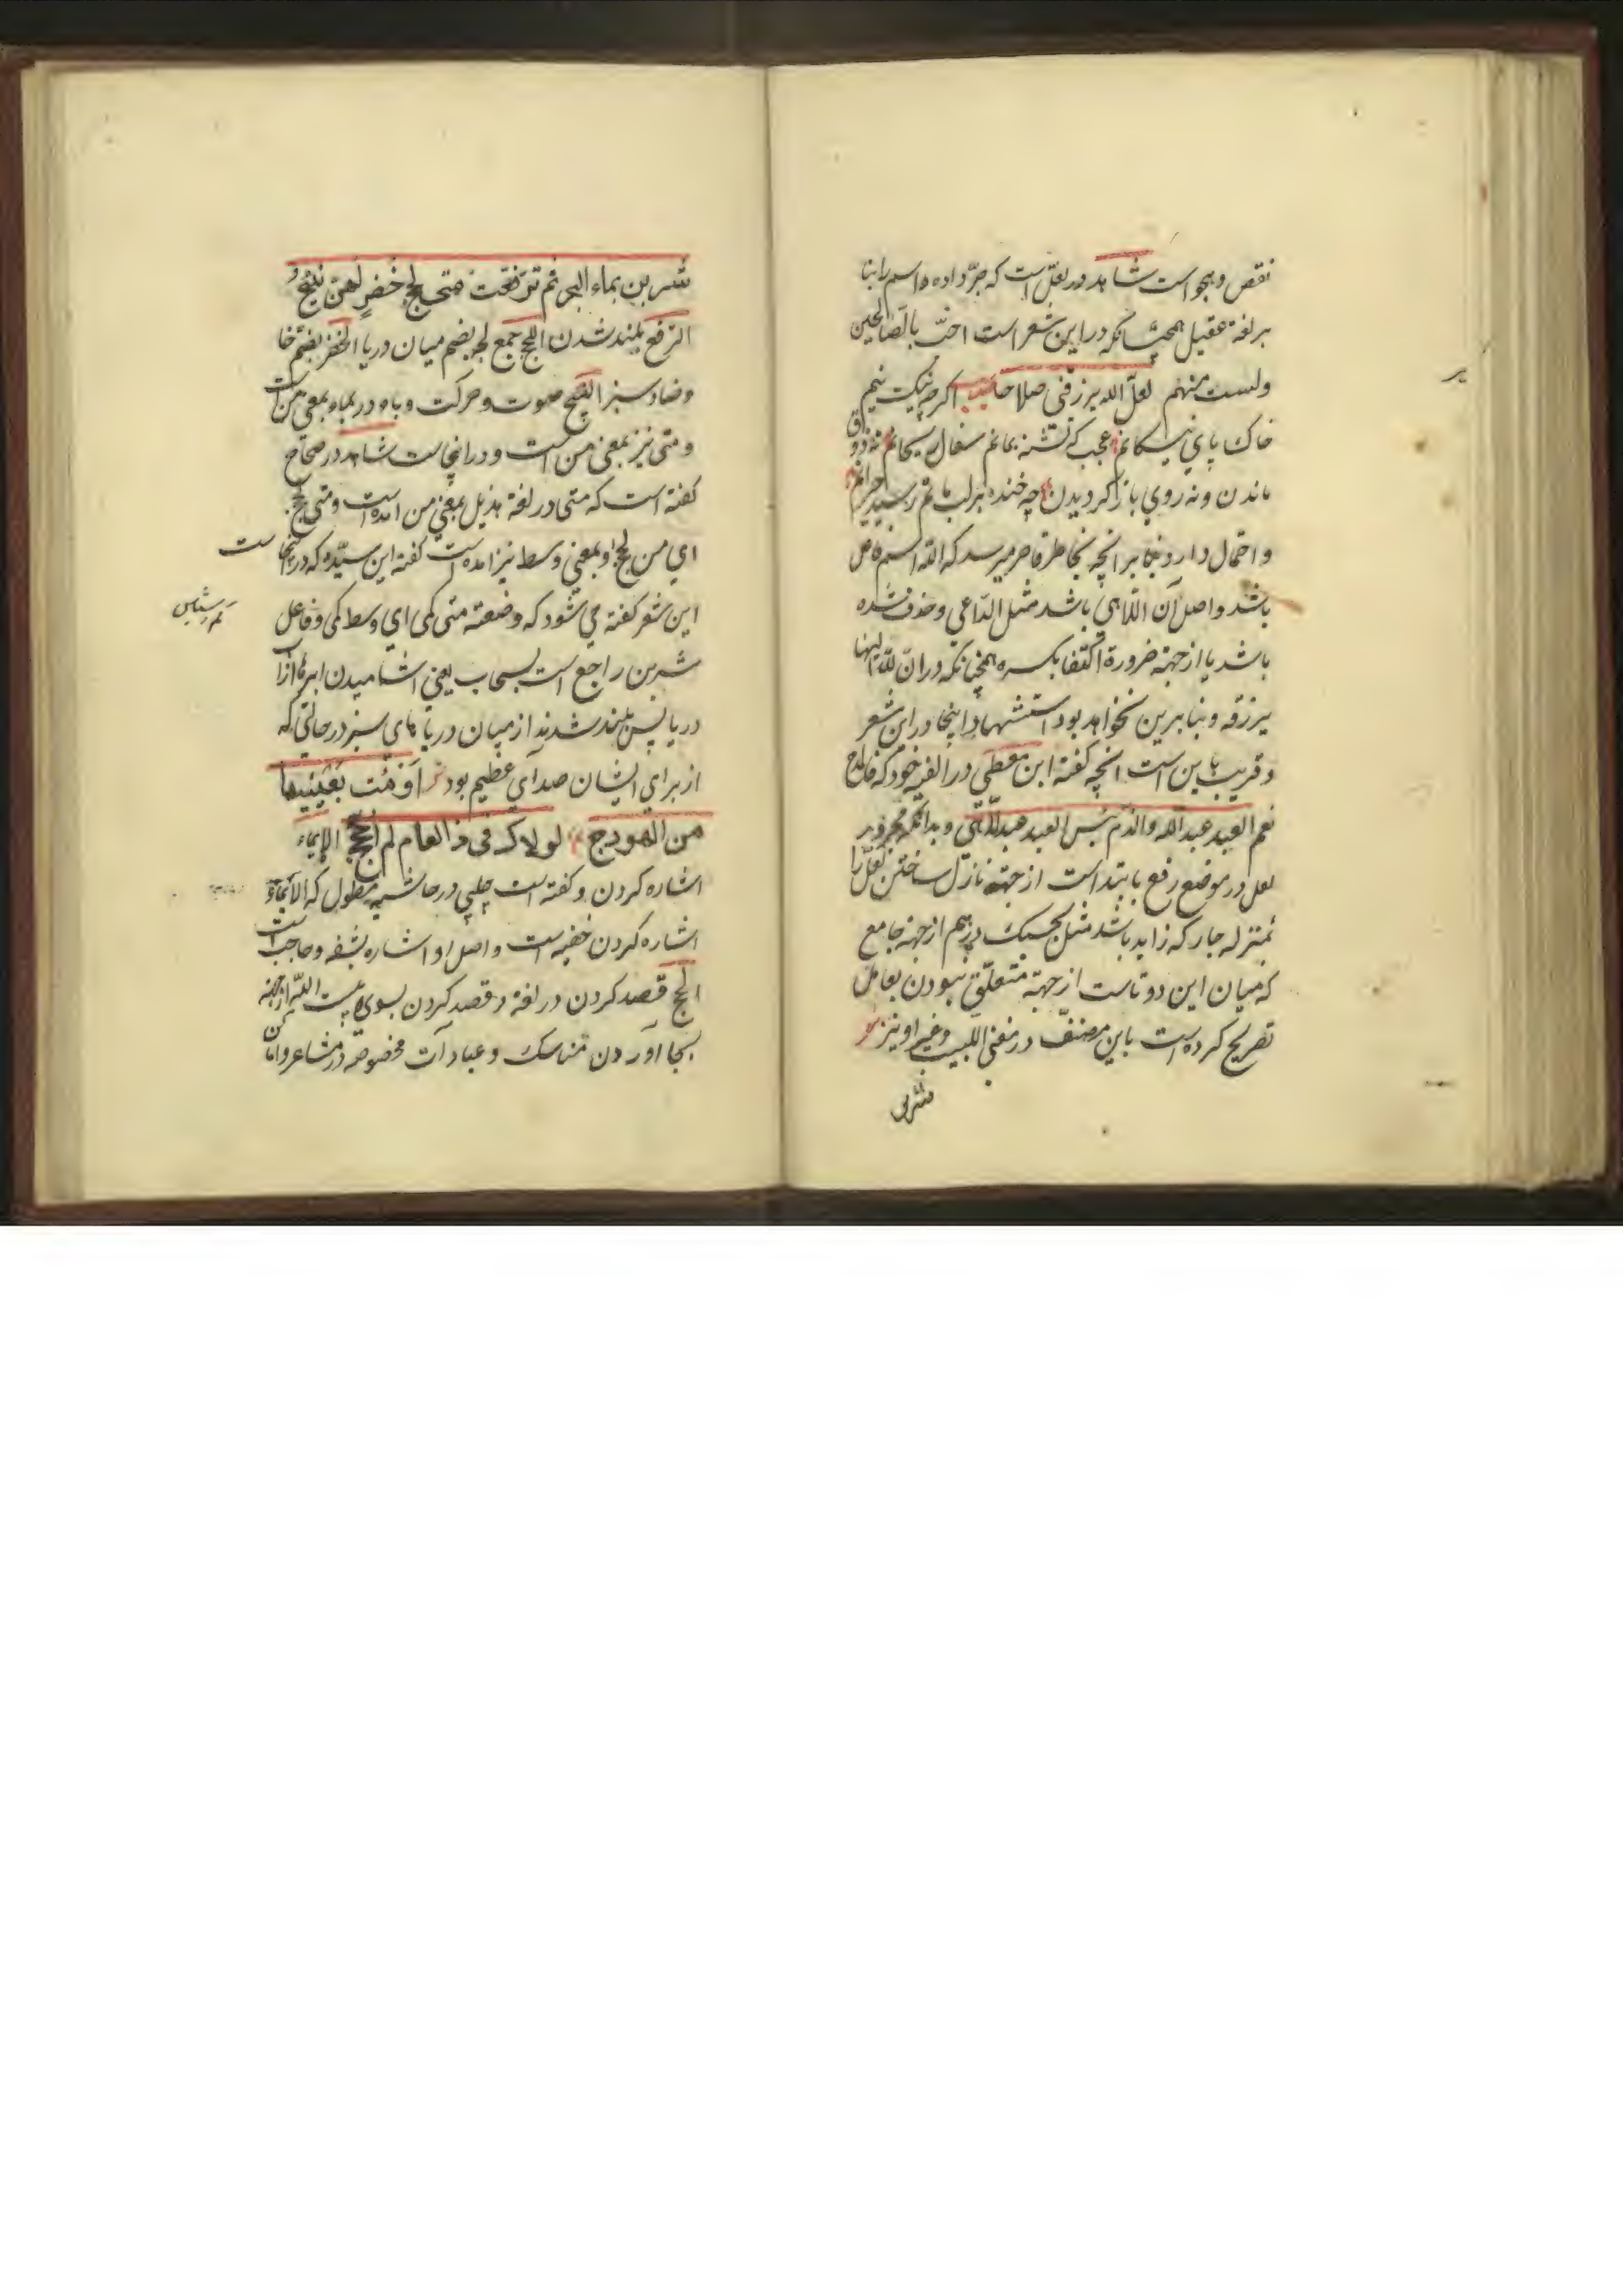 نقص و هجو است شاهد در لعلّ است که جرّ داده و اسم را بنا
بر لغة عقیل همچنانکه در این شعر است احبّ بالصّالحین
ولست منهم لعلّ الله یرزقنی صلاحا اکرچه نیک نیم
خاک پای نیکانم عجب که تشنه بمانم سفال ریحانم نه ذوق
ماندن ونه روي باز کردیدن چه خنده بر لب ماتم رسیده
و احتمال دارد بنابر انچه بخاطر قاصر میرسد که اللّه اسم
باشد واصل آن اللّاهي باشد مثل الدّاعي وحذف شده
باشد یا از جهته ضرورة اکتفا بکسره همچنانکه در انّ للّه
یرزقه و بنابرین نخواهد بود استشهاد اینجا در این شعر
و قریب باین است انچه کفته ابن معطي در الفیه خود که
نعم العبد عبد الله والذم بئس العبد عبد اللاتي و بدانکه مجرور
لعل در موضع رفع بابتداست از جهته نازل ساختن لعلّ را
بمنزله جار که زاید باشد مثل بحسبک درهم از جهته جامع
که میان این دو تاست از جهته متعلّق نبودن بعامل
تصریح کرده است باین مصنّف در مغنی اللبیب و غیر او نیز
شربن
شربن بماء البحر ثم ترفعت متی لجج خضر لهن نئیج
الترفع بلند شدن اللجج جمع لجه بضم میان دریا الخضر بضم خا
وضاد سبز النئیج صوت و حرکت و باء در بماء بمعني من است
و متی نیز بمعني من است و در اینجاست شاهد در صحاح
کفته است که متی در لغة هذیل بمعني من امده است ومتی لجج
اي من لجج و بمعني وسط نیز امده است کفته ابن سیّده که در اینجاست
این شعر کفته مي شود که وضعته متی کمّی اي وسط کمّی و فاعل
شربن راجع است بسحاب یعني اشامیدن ابرها از اب
دریا پس بلند شدند از میان دریا هاي سبز در حالتي که
از براي ایشان صداي عظیم بود اومَت بعینیها
من الهودج لولاک في ذا العام لم احجج الایماء
اشاره کردن و کفته است چلپي در حاشیه مطول که الایماء
اشاره کردن خفیه است و اصل او اشاره بشفه و حاجب است
الحج قصد کردن در لغة و قصد کردن بسوي بیت اللّه از جهته
بجا اوردن مناسک و عبادات مخصوصه در مشاعر و اماکن